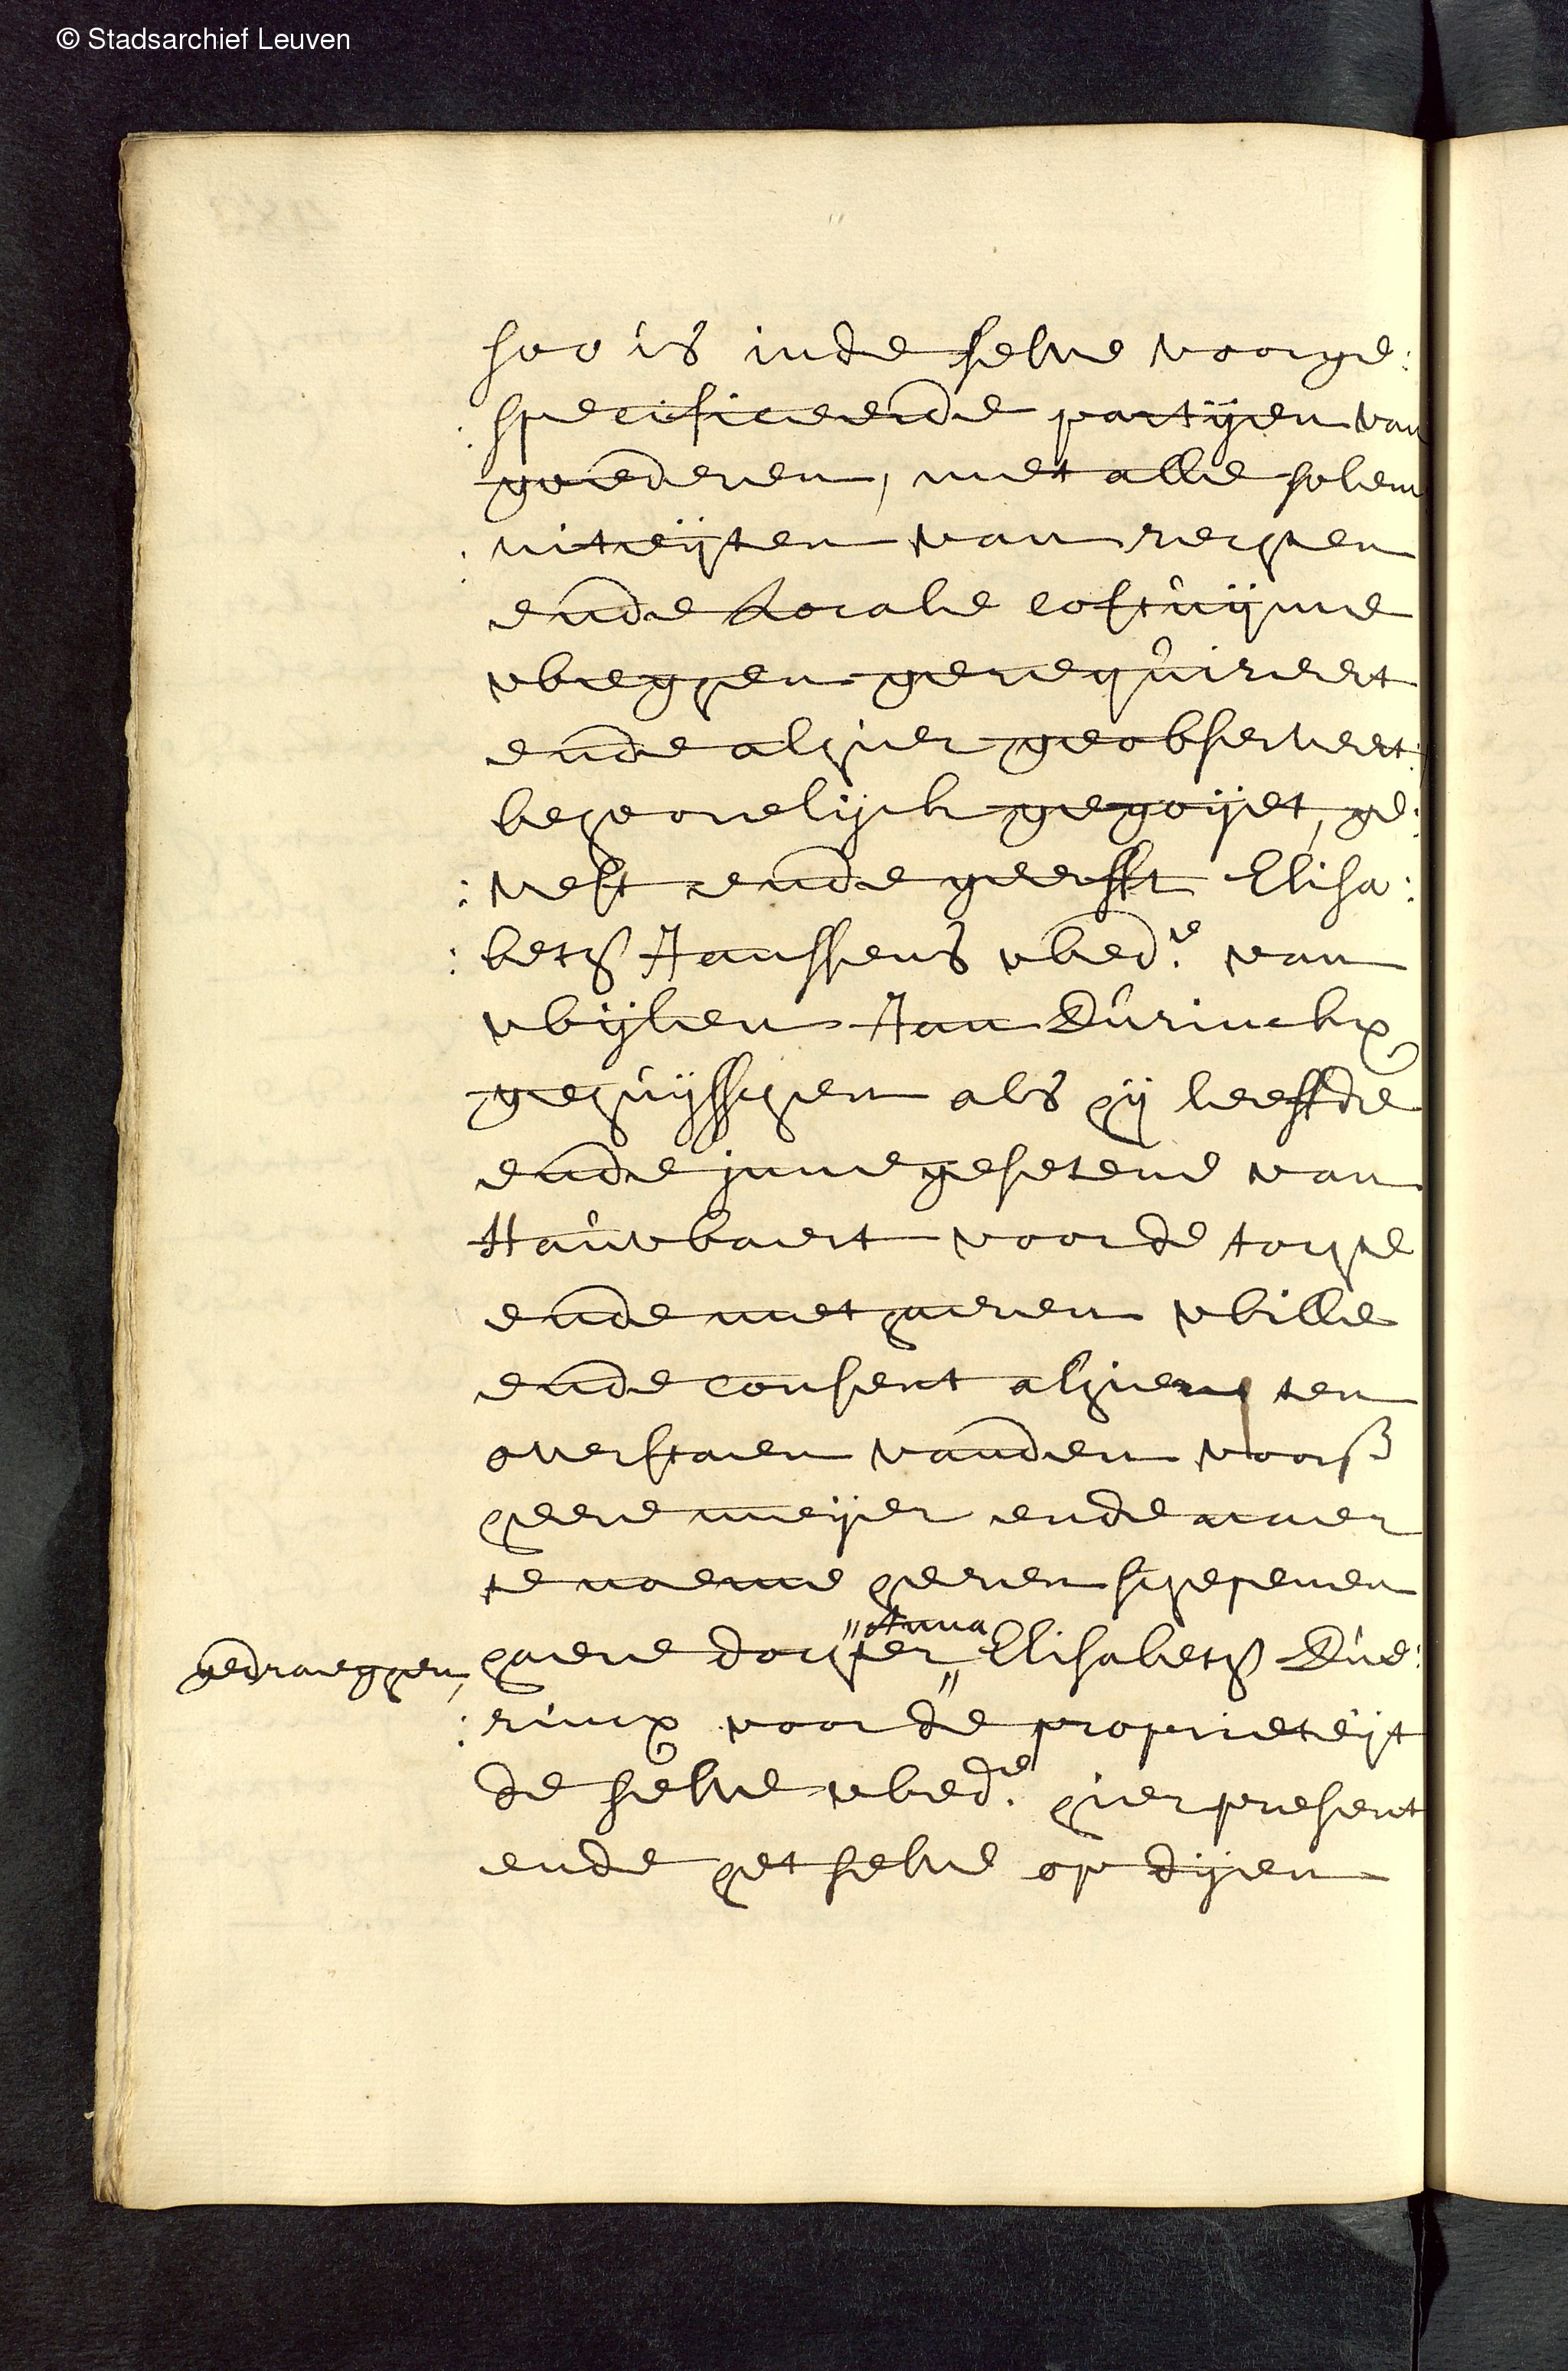 © Stadsarchief Leuven
soo is inde selve voorge:
: specificeerde partijen van
goederen, met alle solem
: niteijten van rechten
ende Locale costuijme
weghen gerequireert
ende alhier geobserveert:
behoorelijck gegoijet, ge:
: vest ende geerfft Elisa:
: beth Janssens wed:e van
wijlen Jan Durinckx
gehuijsschen als hij leeffde
ende innegesetene van
Hauwaert voor de tocht
ende met haeren wille
ende consent alhier ten
overstaen vanden voors
heere meijer ende naer
te noeme heeren schepenen
haere dochter "Anna" Elisabeth Due:
gedraeghen,
: rincx voor de proprieteijt
de selve wed:e hier present
ende het selve op dijen